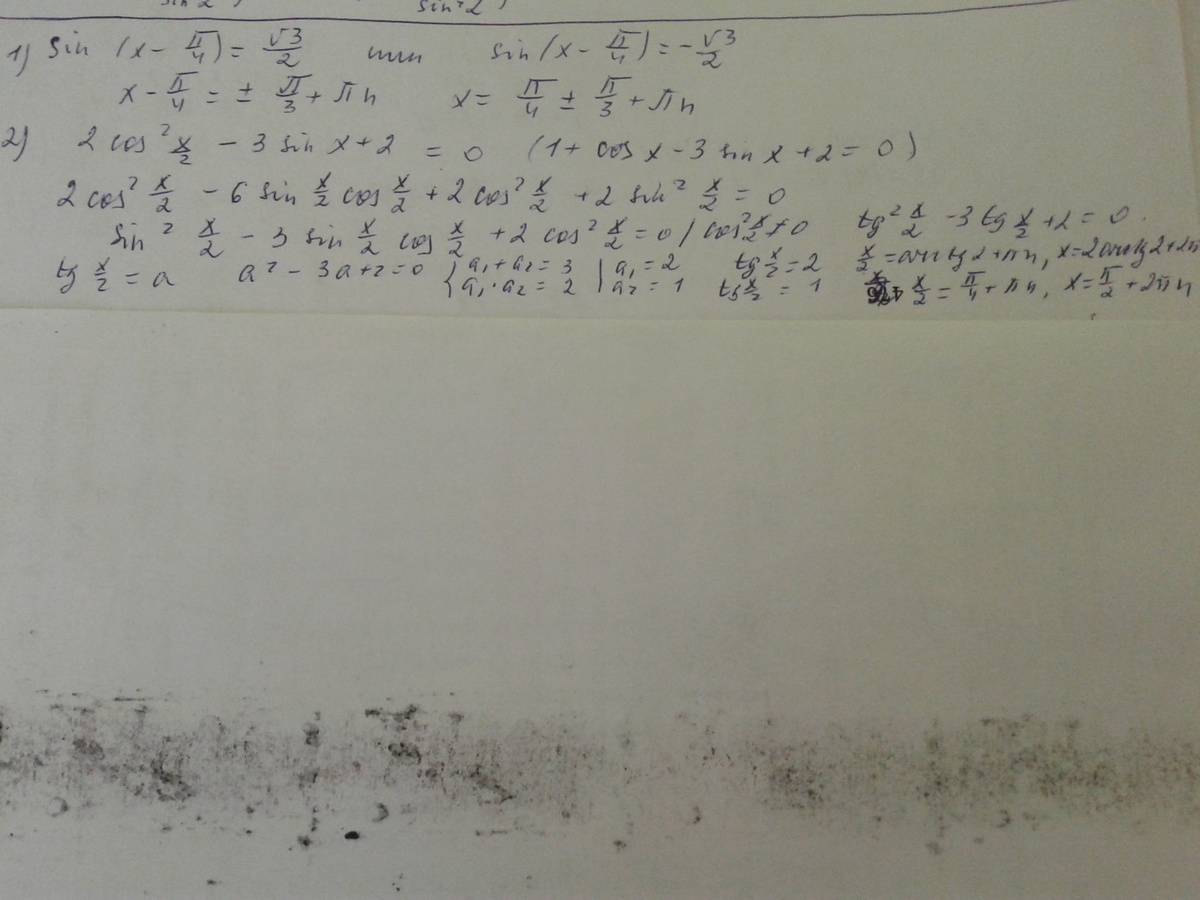 1) sin (x - π/4) = √3/2 или sin (x - π/4) = - √3/2
x - π/4 = ± π/3 + πn x = π/4 ± π/3 + πn
2) 2 cos² x/2 - 3 sin x + 2 = 0 (1 + cos x - 3 sin x + 2 = 0)
2 cos² x/2 - 6 sin x/2 cos x/2 + 2 cos² x/2 + 2 sin² x/2 = 0
sin² x/2 - 3 sin x/2 cos x/2 + 2 cos² x/2 = 0 / cos² x/2 ≠ 0 tg² x/2 - 3 tg x/2 + 2 = 0.
tg x/2 = a a² - 3a + 2 = 0 { a₁ + a₂ = 3 | a₁ = 2 tg x/2 = 2 x/2 = arctg 2 + πn, x = 2 arctg 2 + 2π
a₁ · a₂ = 2 | a₂ = 1 tg x/2 = 1 x/2 = π/4 + πn, x = π/2 + 2πn